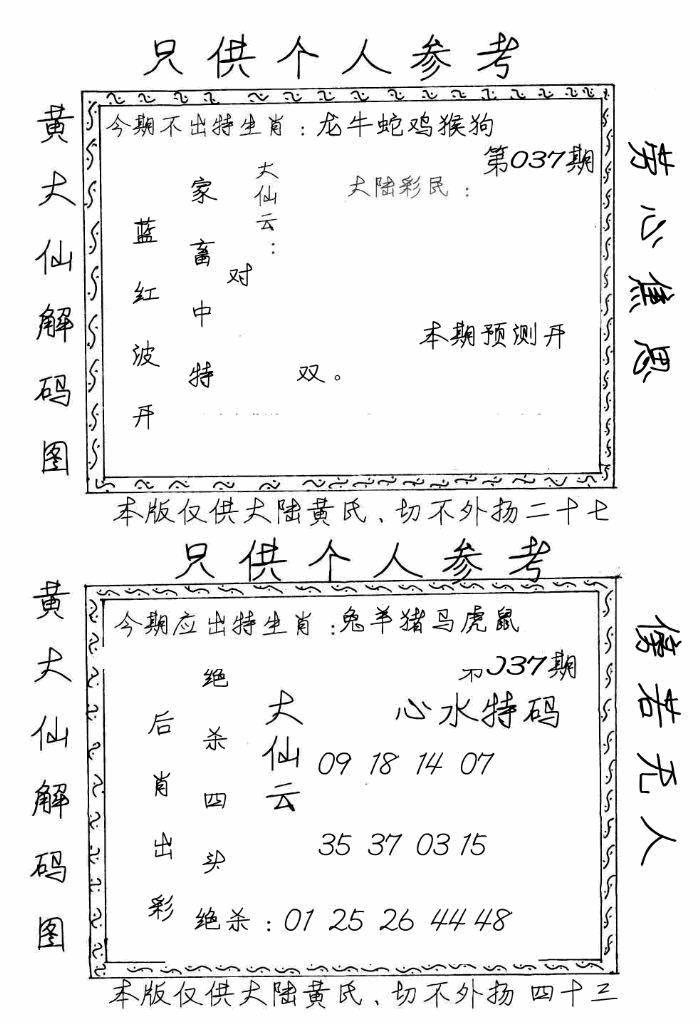 只供个人参考
黄大仙解码图
今期不出特生肖：龙牛蛇鸡猴狗
第037期
大陆彩民：
大仙云：
家畜中特
蓝红波开
对
双。
本期预测开
劳心焦思
本版仅供大陆黄氏、切不外扬二十七
只供个人参考
黄大仙解码图
今期应出特生肖：兔羊猪马虎鼠
037期
心水特码
大仙云
绝杀四头
后肖出彩
09 18 14 07
35 37 03 15
绝杀：01 25 26 44 48
傍若无人
本版仅供大陆黄氏、切不外扬四十三